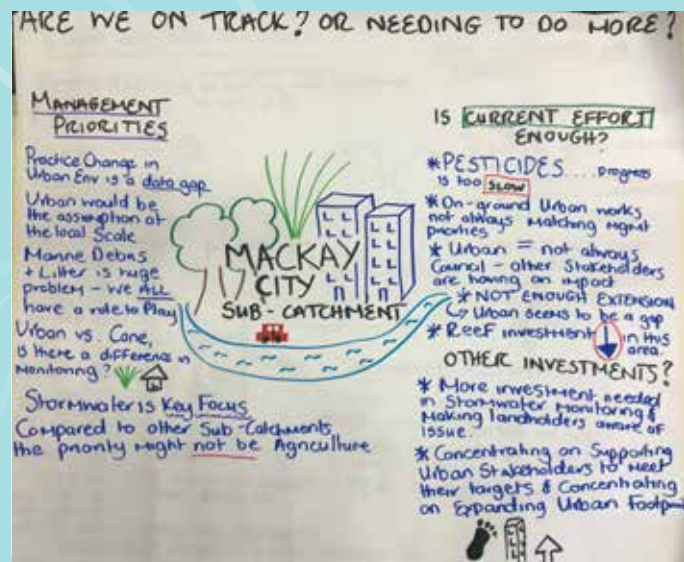 ARE WE ON TRACK? OR NEEDING TO DO MORE?
MANAGEMENT
PRIORITIES
Practice Change in
Urban Env is a data gap
Urban would be
the assumption at
the local Scale
Marine Debris
+ Litter is huge
problem - we ALL
have a role to Play
Urban vs. Cane,
is there a difference in
Monitoring?
Stormwater is Key Focus
Compared to other Sub-Catchments
the priority might not be Agriculture
MACKAY
CITY
SUB-CATCHMENT
IS CURRENT EFFORT
ENOUGH?
*PESTICIDES.... progress
is too SLOW
*On-ground Urban works
not always Matching Mgmt
priorities
* Urban = not always
Council - other Stakeholders
are having an impact
* NOT ENOUGH EXTENSION
↳ Urban seems to be a gap
* Reef investment ↓ in this
area.
OTHER INVESTMENTS?
* More investment needed
in Stormwater Monitoring &
Making landholders aware of
issue.
* Concentrating on Supporting
Urban Stakeholders to Meet
their targets & Concentrating
on Expanding Urban Footprint